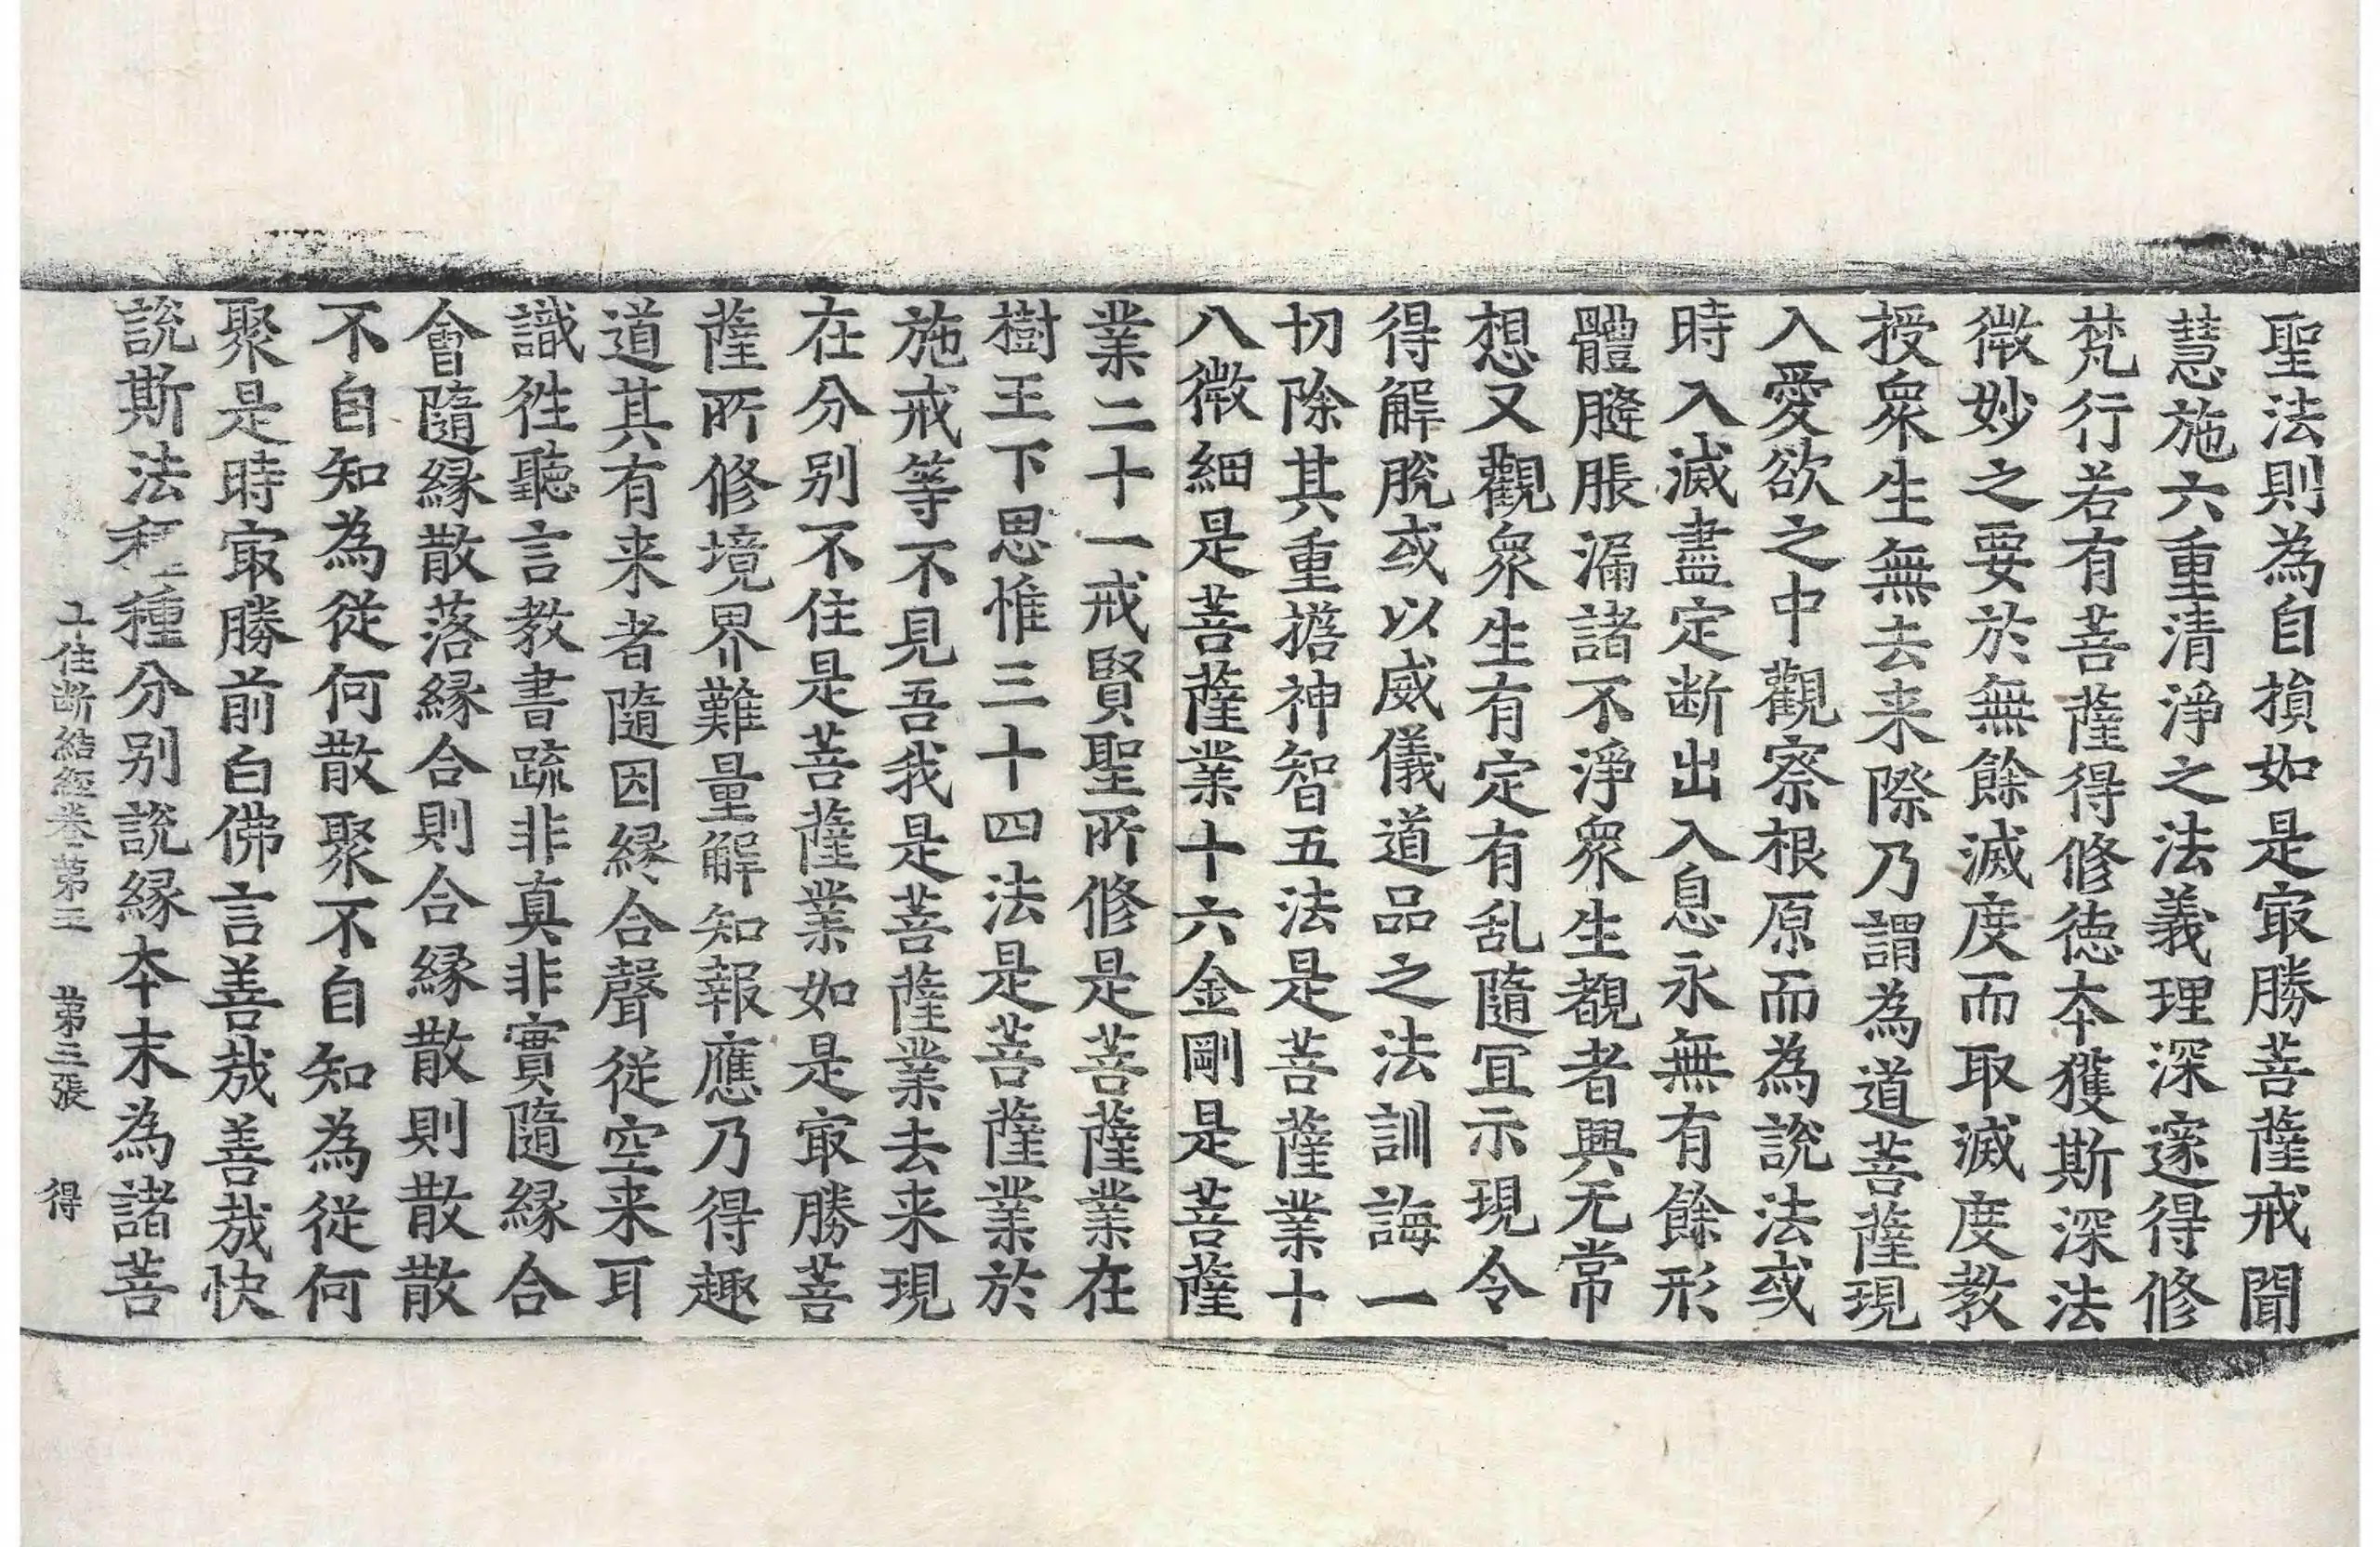 聖法則為自損如是冣勝菩薩戒聞
慧施六重清淨之法義理深邃得修
梵行若有菩薩得修德夲獲斯深法
微妙之要於無餘滅度而取滅度教
授衆生無去来際乃謂為道菩薩現
入愛欲之中觀察根原而為說法或
時入滅盡定断出入息永無有餘形
體膖脹漏諸不淨衆生覩者興无常
想又觀衆生有定有乱隨冝示現令
得解脫或以威儀道品之法訓誨一
切除其重擔神智五法是菩薩業十
八微細是菩薩業十六金剛是菩薩
業二十一戒賢聖所修是菩薩業在
樹王下思惟三十四法是菩薩業於
施戒等不見吾我是菩薩業去来現
在分别不住是菩薩業如是冣勝菩
薩所修境界難量解知報應乃得趣
道其有来者隨因縁合聲従空来耳
識徃聽言教書䟽非真非實隨縁合
會隨縁散落縁合則合縁散則散散
不自知為従何散聚不自知為従何
聚是時冣勝前白佛言善㢤善㢤快
說斯法種種分别說縁夲末為諸菩
住断結經卷第五 第三張 得